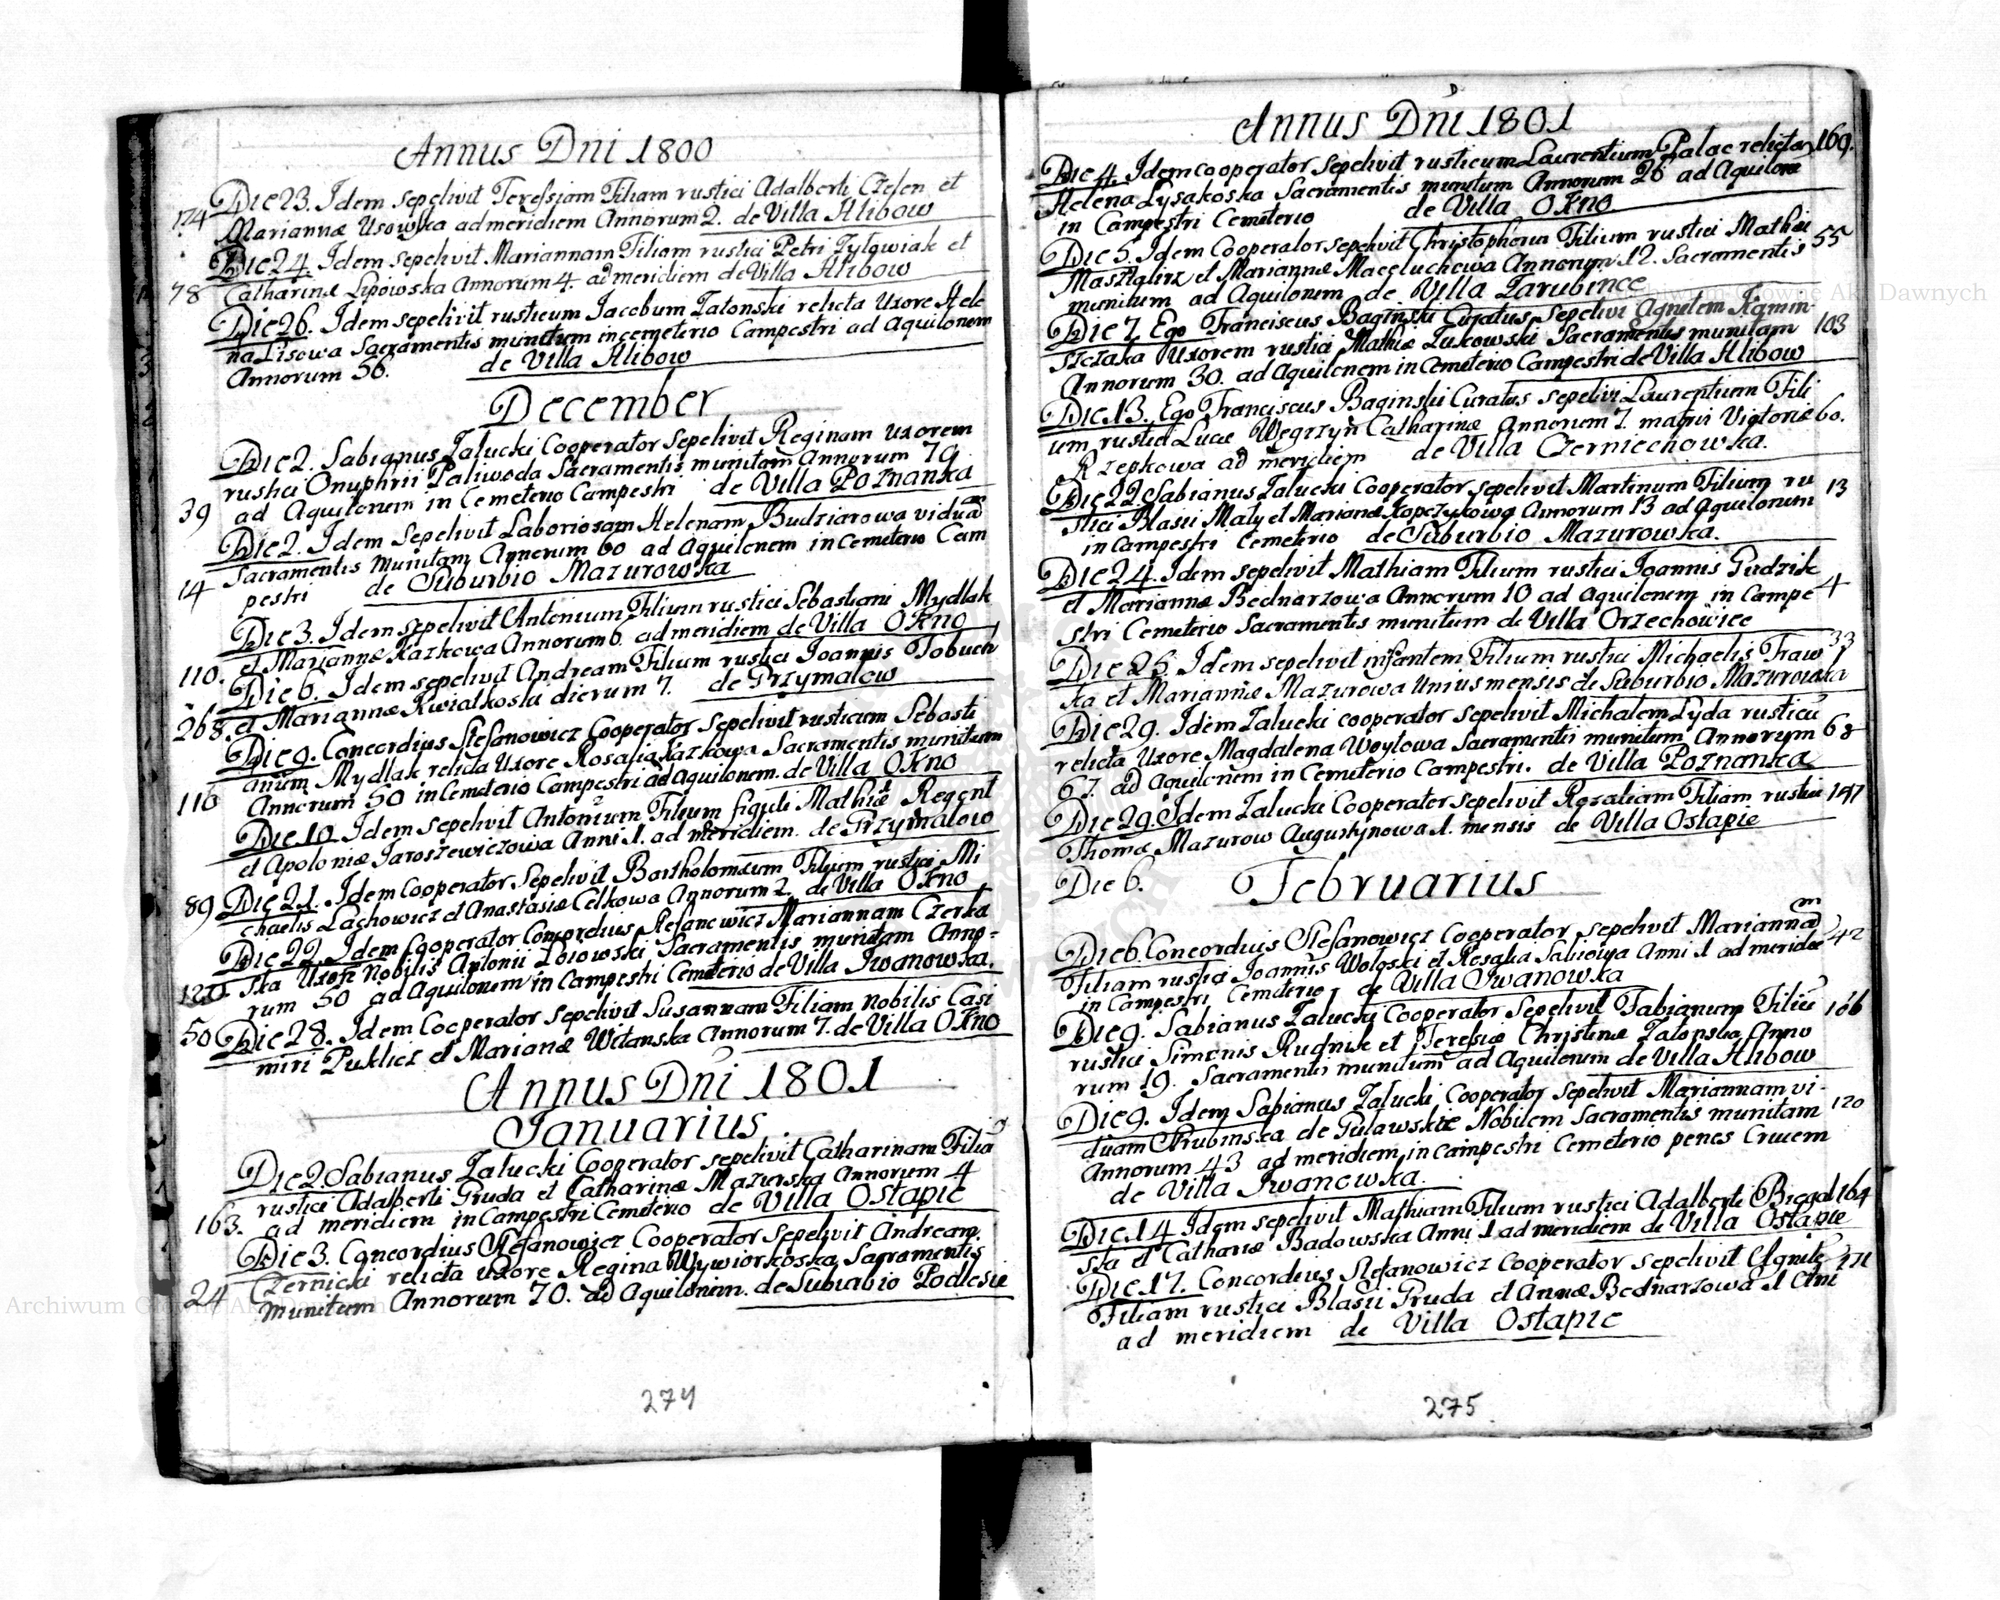 Annus Dni 1800
Die 23. Idem sepelivit Teressiam Filiam rustici Adalberti Czelen et
174 Mariannæ Usowska ad meridiem Annorum 2. de Villa Hlibow
Die 24. Idem sepelivit Mariannam Filiam rustici Petri Tylowiak et
78 Catharinæ Lipowska Annorum 4. ad meridiem de Villa Hlibow
Die 26. Idem sepelivit rusticum Jacobum Zatonski relicta Uxore Hele
na Lisowa Sacramentis munitum in cemeterio Campestri ad Aquilonem
Annorum 56. de Villa Hlibow
December
Die 2. Sabianus Zalucki Cooperator Sepelivit Reginam Uxorem
rustici Onuphrii Paliwoda Sacramentis munitam Annorum 70
39 ad Aquilonem in Cemeterio Campestri de Villa Poznanka
Die 2. Idem Sepelivit Laboriosam Helenam Budziarowa viduam
Sacramentis Munitam Annorum 60 ad Aquilonem in Cemeterio Cam
14 pestri de Suburbio Mazurowka
Die 3. Idem sepelivit Antonium Filium rustici Sebastiani Mydlak
et Mariannæ Kazkowa Annorum 6. ad meridiem de Villa OKno
110. Die 6. Idem sepelivit Andream Filium rustici Joannis Tobuch
268. et Mariannæ Kwialkoska dierum 7. de Grzymalow
Die 9. Concordius Stefanowicz Cooperator Sepelivit rusticum Sebasti
anum Mydlak relicta Uxore Rosalia Kazkowa Sacramentis munitum
116 Annorum 50 in Cemeterio Campestri ad Aquilonem. de Villa OKno
Die 10. Idem sepelivit Antonium Filium figuli Mathiæ Regent
et Apoloniæ Jaroszewiczowa Anni 1. ad meridiem. de Grzymalow
89 Die 21. Idem Cooperator Sepelivit Bartholomæum Filium rustici Mi
chaelis Lachowicz et Anastasiæ Celkowa Annorum 2. de Villa OKno
Die 22. Idem Cooperator Concordius Stefanowicz Mariannam Czerka
120 ska Uxor Nobilis Antonii Zbiowski Sacramentis munitam Anno-
rum 50 ad Aquilonem in Campestri Cemeterio de Villa Iwanowka.
50 Die 28. Idem Cooperator Sepelivit Susannam Filiam Nobilis Casi
miri Puklicz et Marianæ Witanska Annorum 7. de Villa OKno
Annus Dni 1801
Januarius
Die 2 Sabianus Zalucki Cooperator Sepelivit Catharinam Filia
rustici Adalberti Gruda et Catharinæ Mazurska Annorum 4
163. ad meridiem in Campestri Cemeterio de Villa Ostapie
Die 3. Concordius Stefanowicz Cooperator Sepelivit Andream
24 Czernicki relicta uxore Regina Wywiorkoska Sacramentis
munitum Annorum 70. ad Aquilonem. de Suburbio Podlesie
274
Annus Dni 1801
Die 4. Idem cooperator sepelivit rusticum Laurentium Palac relicta 169.
Helena Lysakoska Sacramentis munitum Annorum 26 ad Aquilone
in Campestri Cemeterio de Villa OKno
Die 5. Idem Cooperator sepelivit Christopherum Filium rustici Mathei 55
Masztglirz et Mariannæ Maceluchowa Annorum 12. Sacramentis
munitum ad Aquilonem de Villa Zarubince
Die 7. Ego Franciscus Baginski Curatus Sepelivi Agnetem Kamin 103
szczaka Uxorem rustici Mathiæ Zukowski Sacramentis munitam
Annorum 30. ad Aquilonem in Cemeterio Campestri de Villa Hlibow
Die 13. Ego Franciscus Baginski Curatus sepelivi Laurentium Fili
um rustici Lucæ Wegrzyn Catharinæ Annorum 7. matris Victoriæ 60.
Rzepkowa ad meridiem de Villa Czerniechowka.
Die 22 Sabianus Zalucki Cooperator sepelivit Martinum Filium ru 13
stici Blasii Maty et Marianæ Kopczykowa Annorum 13 ad Aquilonem
in Campestri Cemeterio de Suburbio Mazurowka.
Die 24. Idem sepelivit Mathiam Filium rustici Joannis Gudzik
et Mariannæ Bednarzowa Annorum 10 ad aquilonem in Campe 4
stri Cemeterio Sacramentis munitum de Villa Orzechowiec
Die 25. Idem sepelivit infantem Filium rustici Michaelis Traw 33
ka et Mariannæ Mazurowa Unius mensis de Suburbio Mazurowka
Die 29. Idem Zalucki cooperator sepelivit Michalem Lyda rusticu
relicta Uxore Magdalena Woytowa Sacramentis munitum Annorum 68
67. ad Aquilonem in Cemeterio Campestri. de Villa Poznanka
Die 29. Idem Zalucki Cooperator Sepelivit Rozaliam Filiam rustici 197
Thomæ Mazurow Augustynowa 1. mensis de Villa Ostapie
Die 6. Februarius
Die 6. Concordius Stefanowicz Cooperator sepelivit Mariannam
Filiam rustici Joannis Woloski et Rosalia Saliowa Anni 1 ad meridie 242
in Campestri Cemeterio de Villa Iwanowka
Die 9. Sabianus Zalucki Cooperator Sepelivit Fabianum Filiu 186
rustici Simonis Rudnik et Teresiæ Christinæ Zatonska Anno
rum 19. Sacramentis munitum ad Aquilonem de Villa Hlibow
Die 9. Idem Sabianus Zalucki Cooperator Sepelivit Mariannam vi- 120
duam Rubinska de Gulawskie Nobilem Sacramentis munitam
Annorum 43 ad meridiem in campestri Cemeterio penes Crucem
de Villa Iwanowka.
Die 14 Idem sepelivit Mathiam Filium rustici Adalberti Biegal 164
ska et Catharinæ Badowska Anni 1 ad meridiem de Villa Ostapie
Die 17. Concordius Stefanowicz Cooperator sepelivit Agnite 271
Filiam rustici Blasii Gruda et Annæ Bednarzowa 1 Ani
ad meridiem de Villa Ostapie
275
Archiwum Główne Akt Dawnych
Archiwum Główne Akt Dawnych